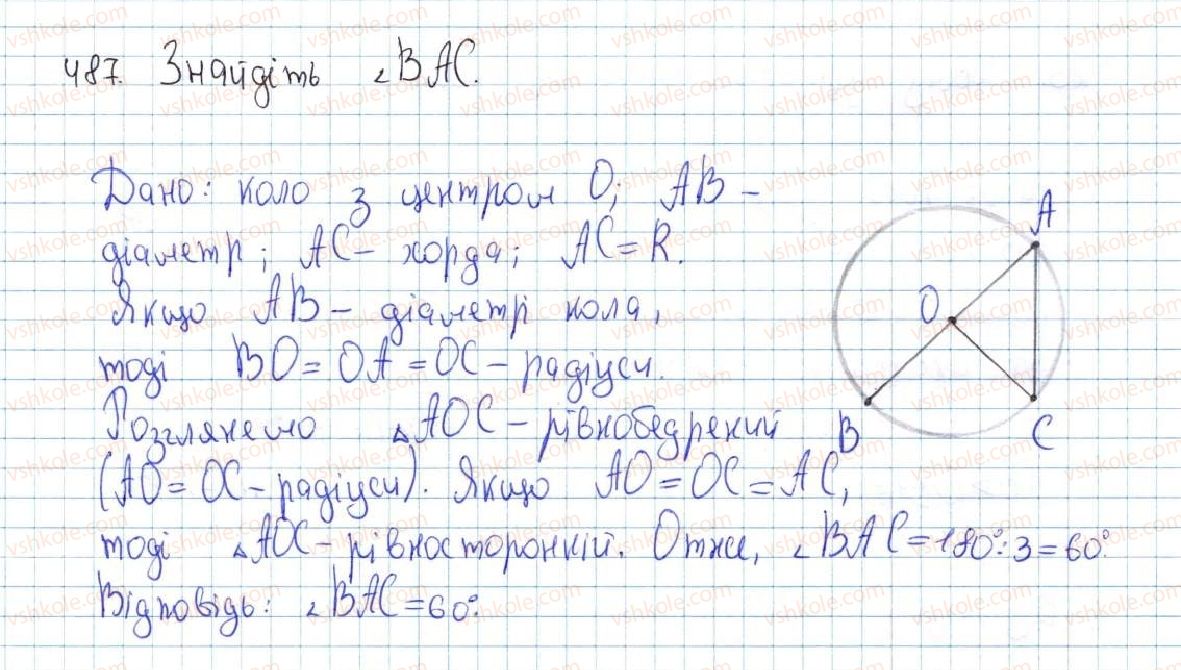 487. Знайдіть ∠BAC.
Дано: коло з центром O; AB –
діаметр; AC – хорда; AC = R.
Якщо AB – діаметр кола,
тоді BO = OA = OC – радіуси.
Розглянемо △AOC – рівнобедрений
(AO = OC – радіуси). Якщо AO = OC = AC,
тоді △AOC – рівносторонній. Отже, ∠BAC = 180° : 3 = 60°.
Відповідь: ∠BAC = 60°.
A
O
B
C
vshkole.com